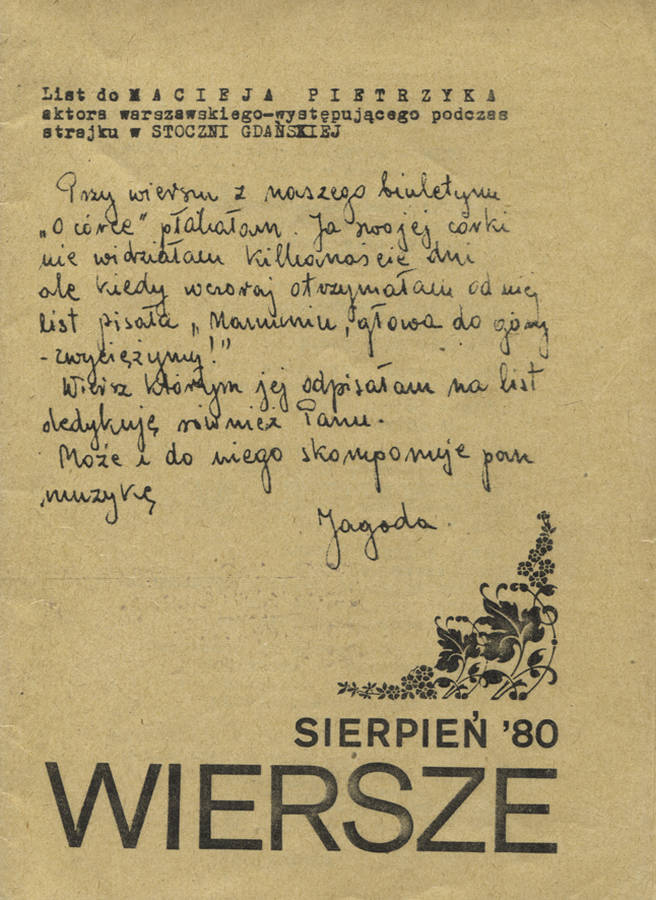 List do M A C I E J A P I E T R Z Y K A
aktora warszawskiego-występującego podczas
strajku w STOCZNI GDAŃSKIEJ
Przy wierszu z naszego biuletynu
„O córce" płakałam. Ja swojej córki
nie widziałam kilkanaście dni
ale kiedy wczoraj otrzymałam od niej
list pisała „Mamuniu, głowa do góry
- zwyciężymy!"
Wiersz którym jej odpisałam na list
dedykuję również Panu.
Może i do niego skomponuje pan
muzykę
Jagoda.
SIERPIEŃ '80
WIERSZE